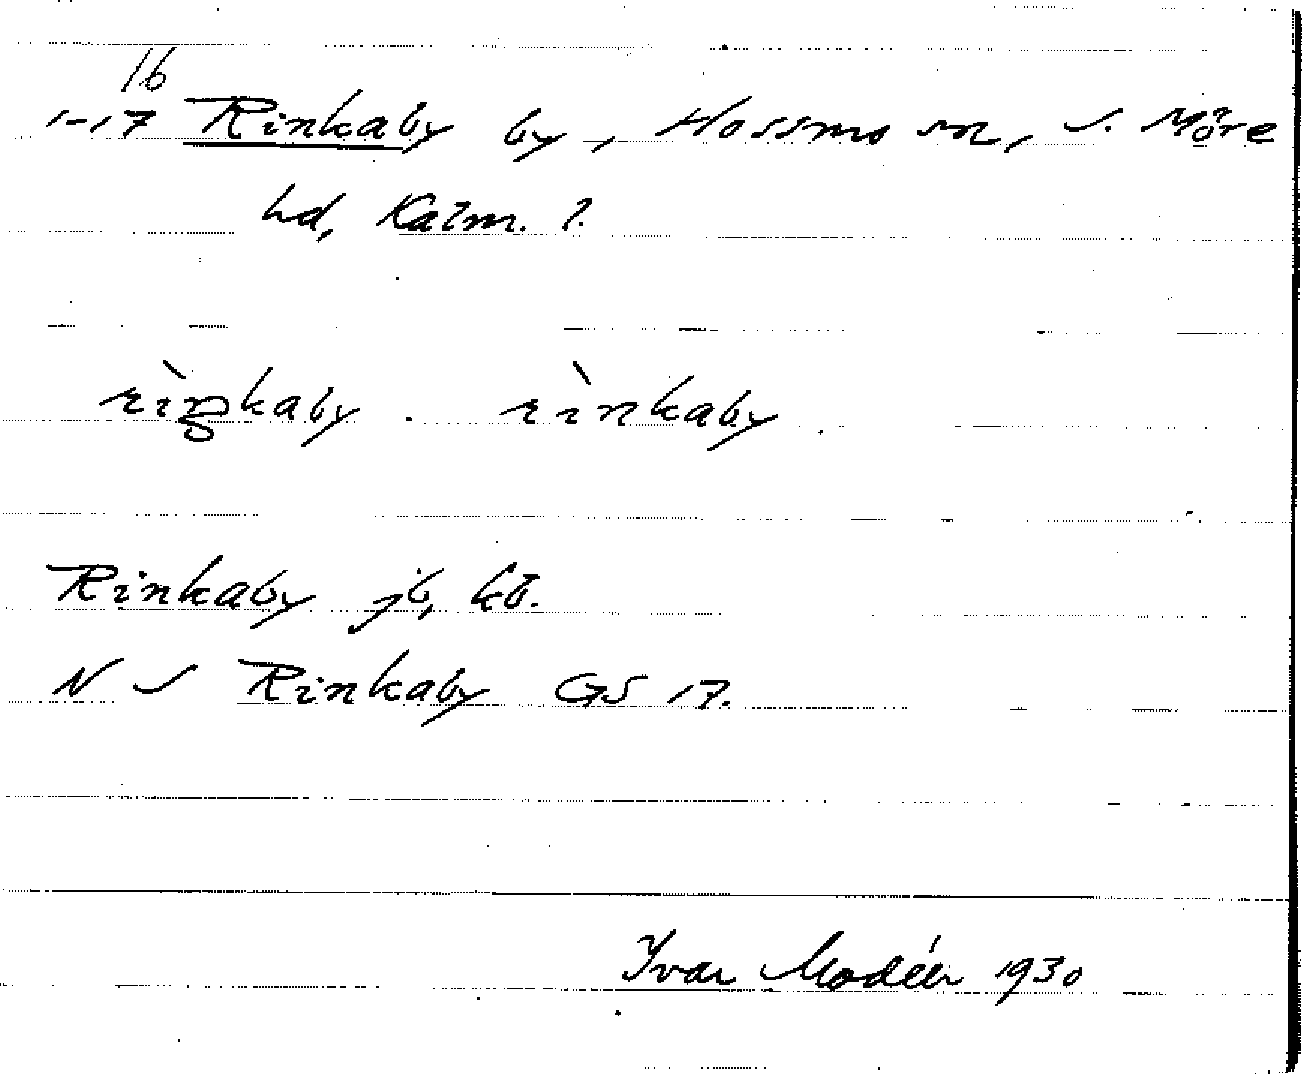 16
1-17 Rinkaby by, Hossmo sn, S. Möre
hd, Kalm. l.
rìŋkaby . rìnkaby .
Rinkaby jb, kb.
N S Rinkaby GS 17.
Ivar Modéer 1930